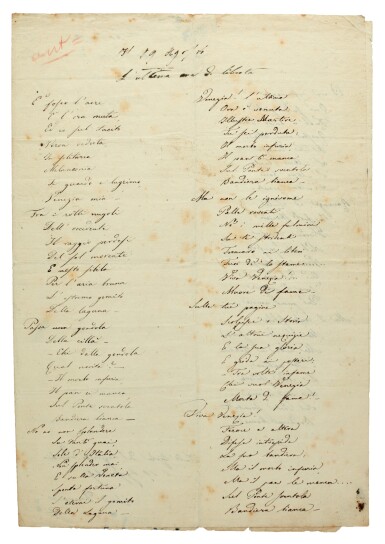 È fosco l'aere
È l'ora muta
Ed io sul tacito
Veron seduto
In solitaria
Melanconia
Ti guardo e lagrimo
Venezia mia
Fra i rotti nugoli
Dell'occidente
Il raggio perdesi
Del sol morente
E mesto sibila
Per l'aria bruna
L'ultimo gemito
Della laguna
Passa una gondola
Della città
Ehi della gondola
Qual novità?
Il morbo infuria
Il pan ci manca
Sul Ponte sventola
Bandiera bianca
No no non splendere
Su tanti guai
Sole d'Italia
Non splender mai
E sulla Veneta
Spenta fortuna
S'eterni il gemito
Della laguna
Venezia! l'ultima
Ora è venuta
Illustre Martire
Tu sei perduta
Il morbo infuria
Il pan ti manca
Sul Ponte sventola
Bandiera bianca
Ma non le ignivome
Palle roventi
Nè i mille fulmini
Su te stridenti
Troncaro ai liberi
Tuoi dì lo stame...
Viva Venezia!
Muore di fame
Sulle tue pagine
Scolpisci o Storia
E la sua gloria
E grida ai posteri
Tre volte infame
Chi vuol Venezia
Morta di fame!
Viva Venezia!
Difese intrepida
La sua bandiera
Ma il morbo infuria
Ma il pan le manca...
Sul Ponte sventola
Bandiera bianca